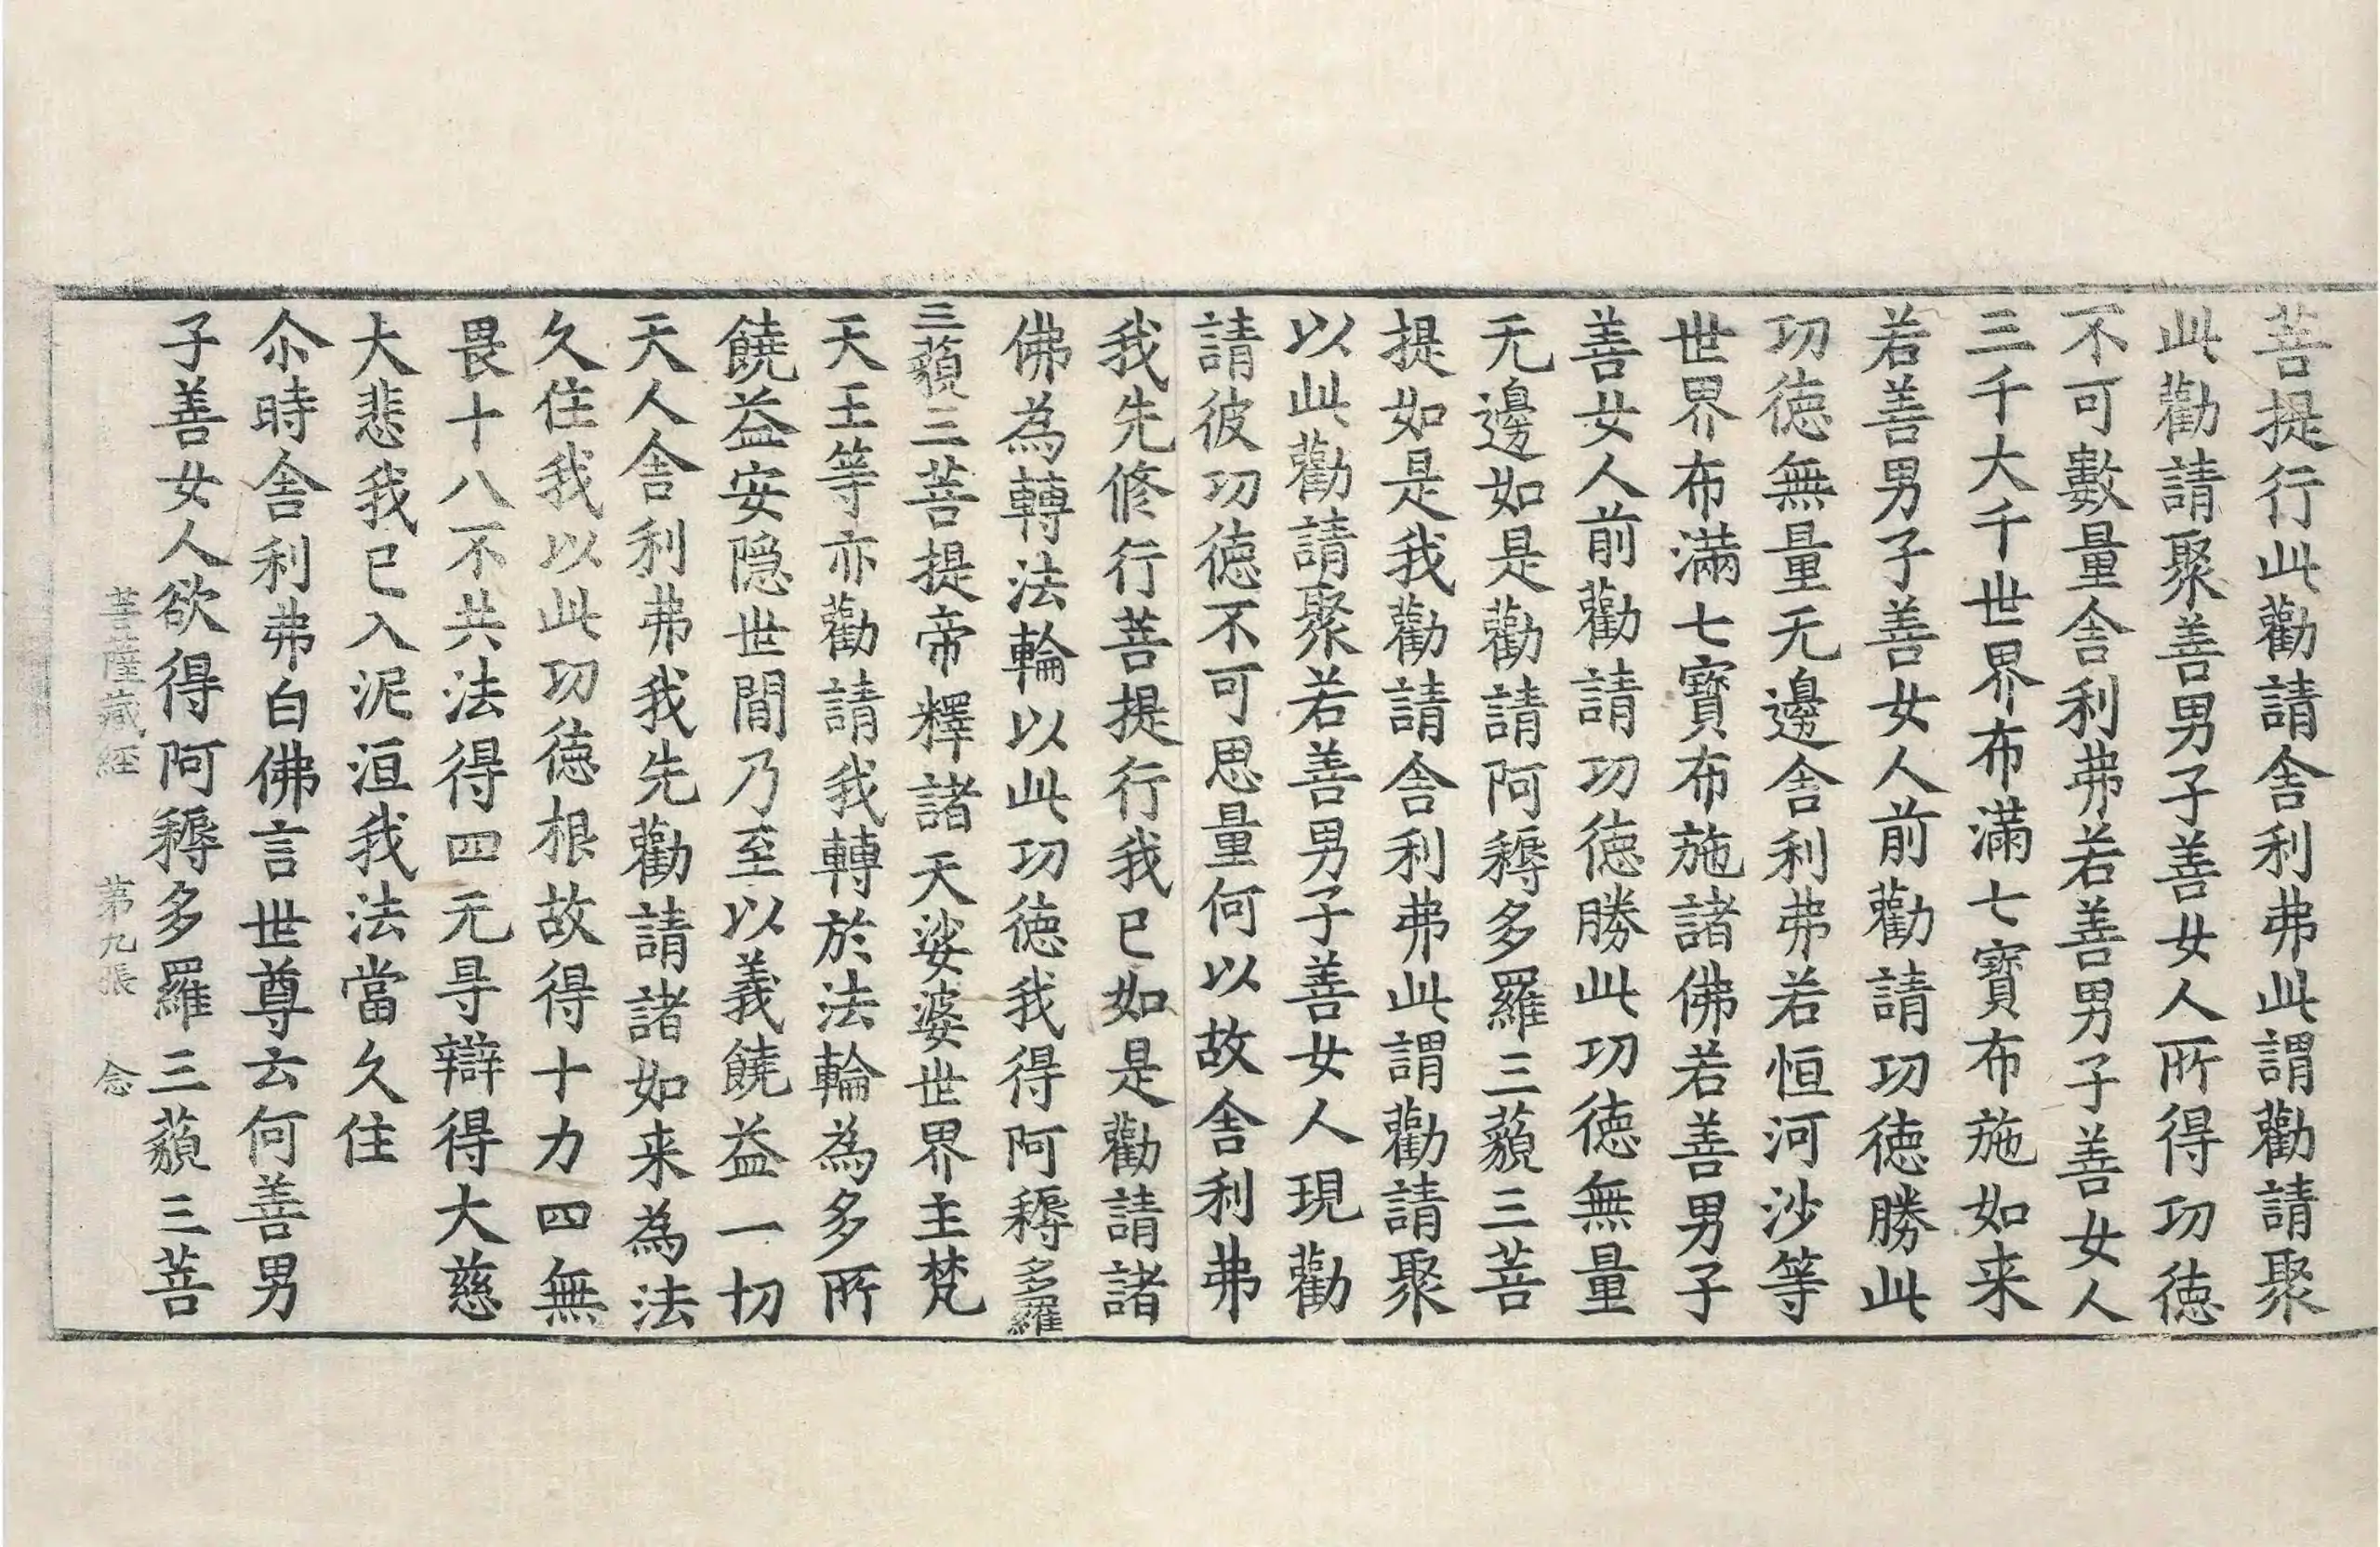 菩提行此勸請舎利弗此謂勸請聚
此勸請聚善男子善女人所得功徳
不可數量舎利弗若善男子善女人
三千大千世界布滿七寶布施如来
若善男子善女人前勸請功徳勝此
功徳無量无邊舎利弗若恒河沙等
世界布滿七寶布施諸佛若善男子
善女人前勸請功徳勝此功徳無量
无邊如是勸請阿耨多羅三藐三菩
提如是我勸請舎利弗此謂勸請聚
以此勸請聚若善男子善女人現勸
請彼功徳不可思量何以故舎利弗
我先修行菩提行我已如是勸請諸
佛為轉法輪以此功徳我得阿耨多羅
三藐三菩提帝釋諸天娑婆世界主梵
天王等亦勸請我轉於法輪為多所
饒益安隠世間乃至以義饒益一切
天人舎利弗我先勸請諸如来為法
久住我以此功徳根故得十力四無
畏十八不共法得四无㝵辯得大慈
大悲我已入泥洹我法當久住
尒時舎利弗白佛言世尊云何善男
子善女人欲得阿耨多羅三藐三菩
菩薩藏経 第九張 念